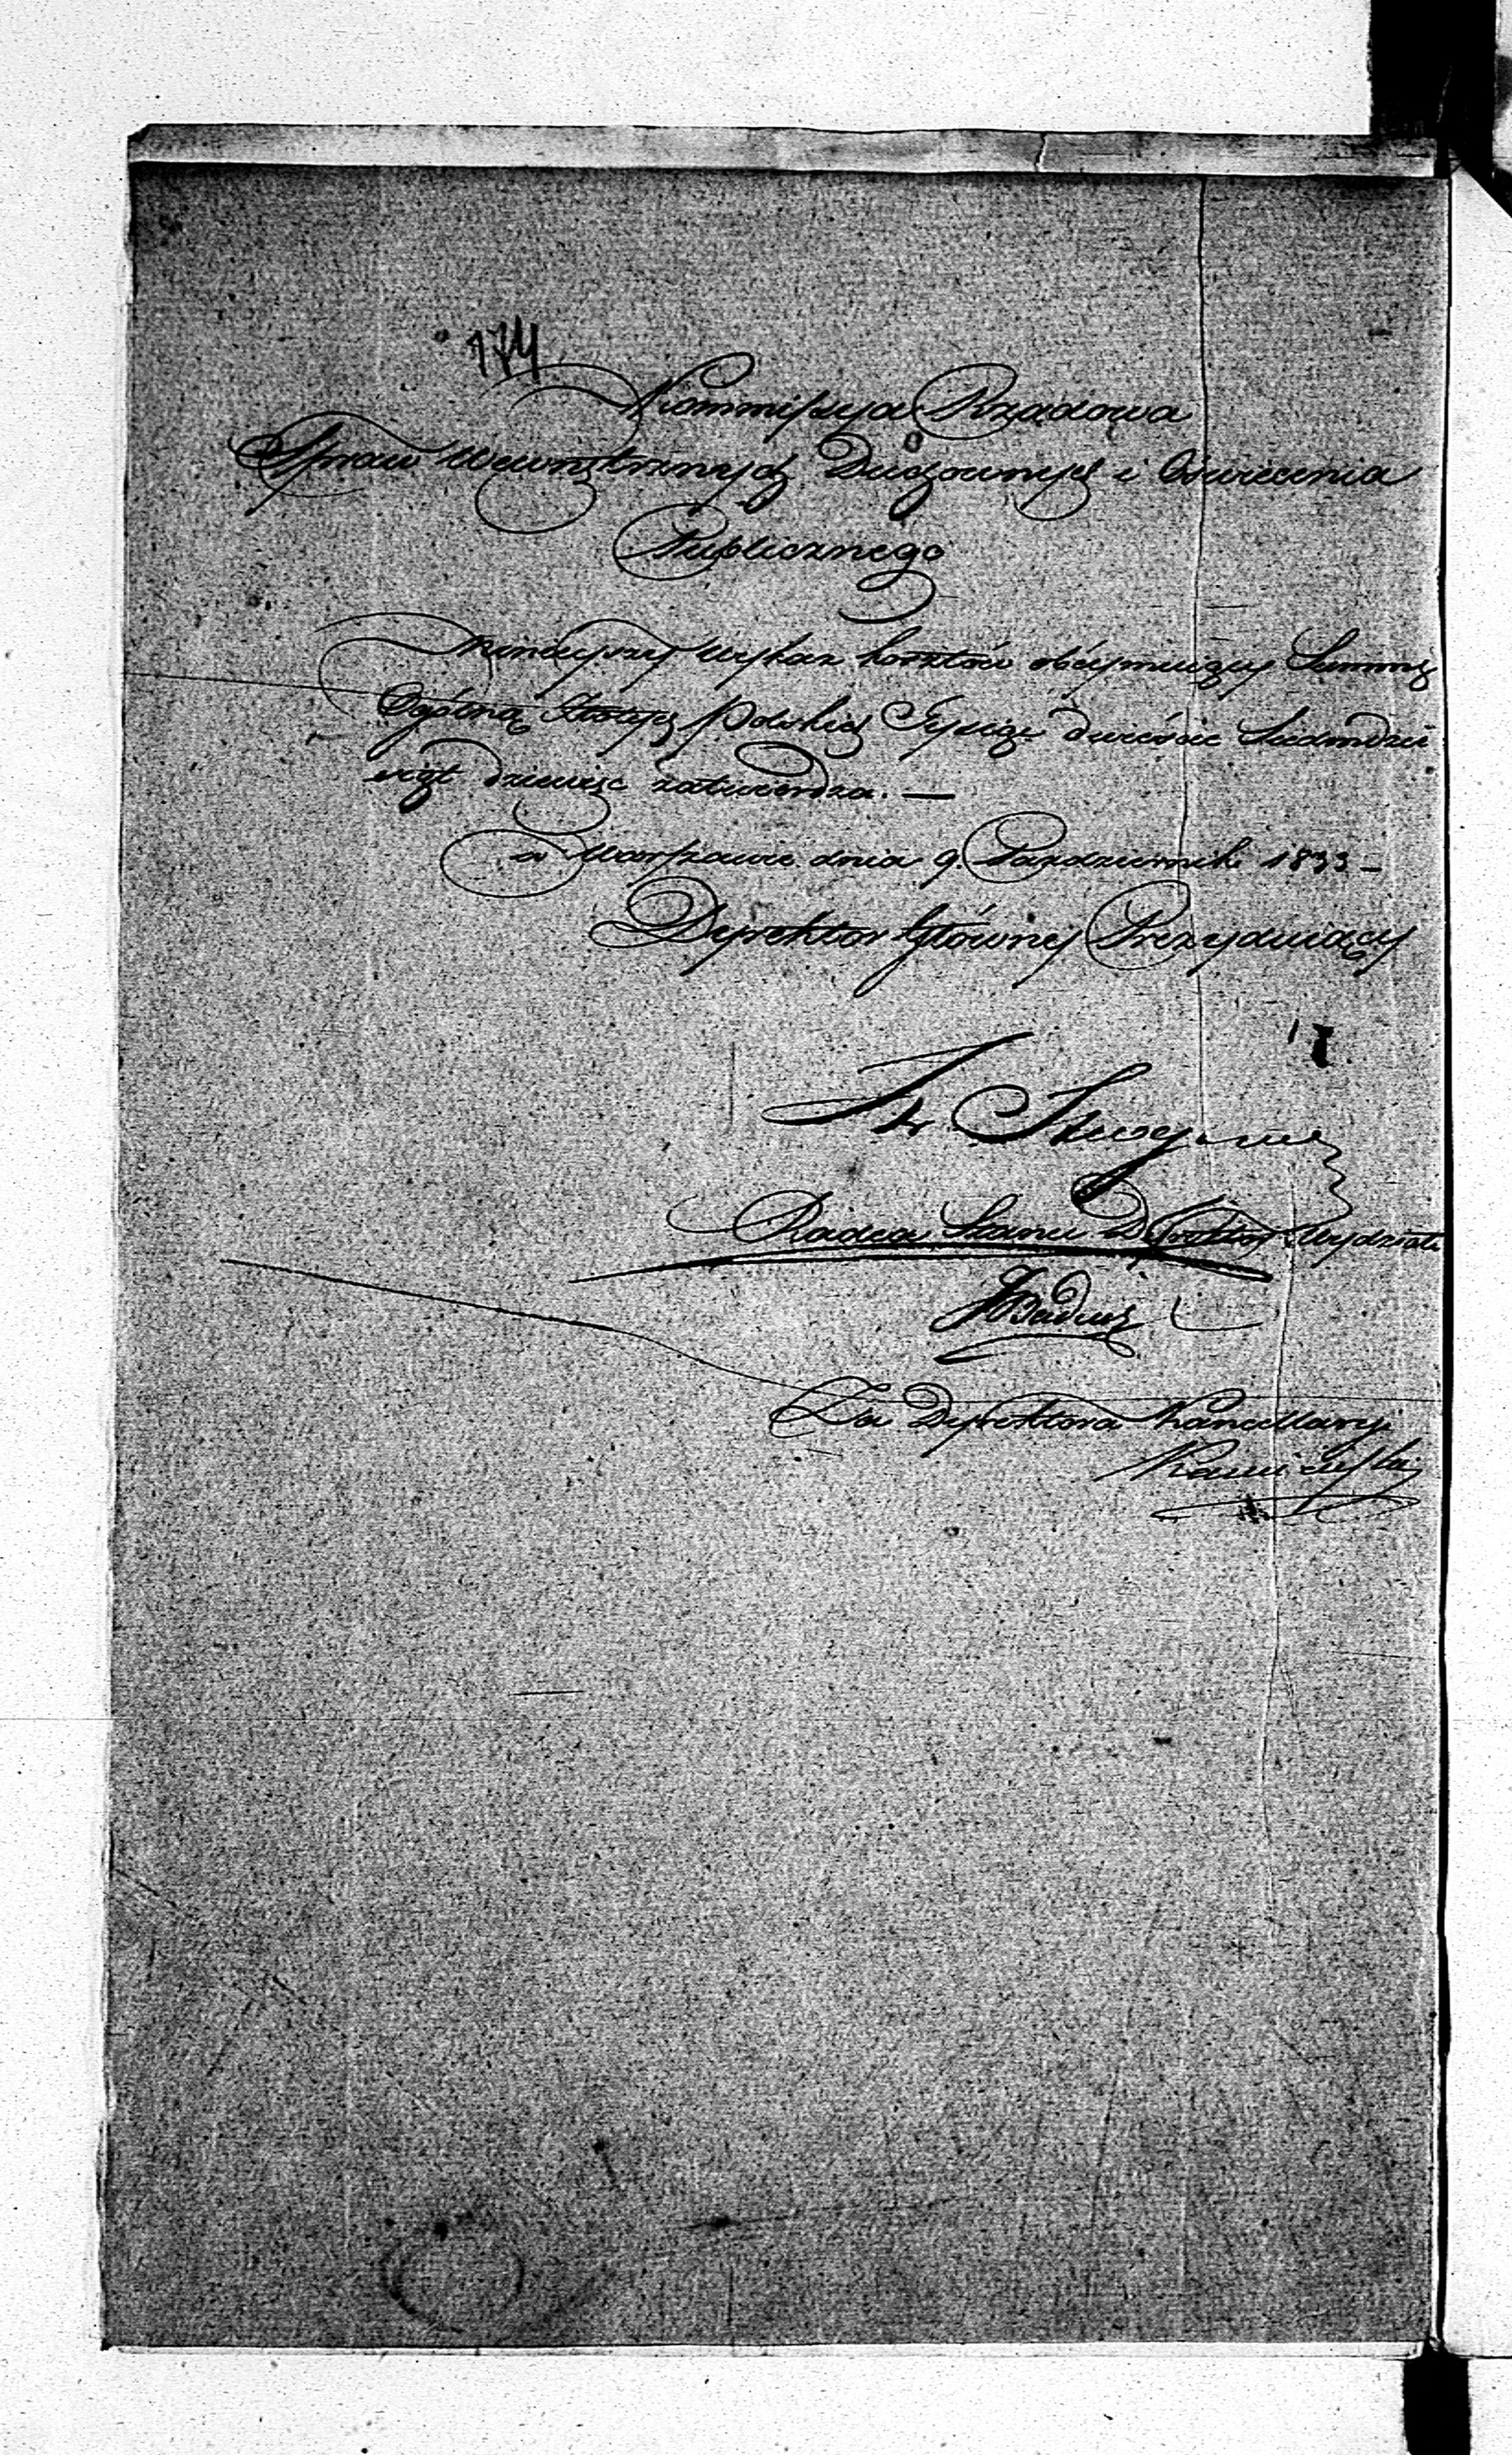 174
Kommissya Rządowa
Spraw Wewnętrznych Duchownych i Oświecenia
Publicznego
Ninieyszy Wykaz kosztów obeymuiący Summę
Ogólną Złotych Polskich Tysiąc dwieście Siedmdzie
siąt dziewięć zatwierdza. —
w Warszawie dnia 9. Październik 1833 —
Dyrektor Główny Prezyduiący
Radca Stanu Dyrektor Wydziału
Za Dyrektora Kancellaryi